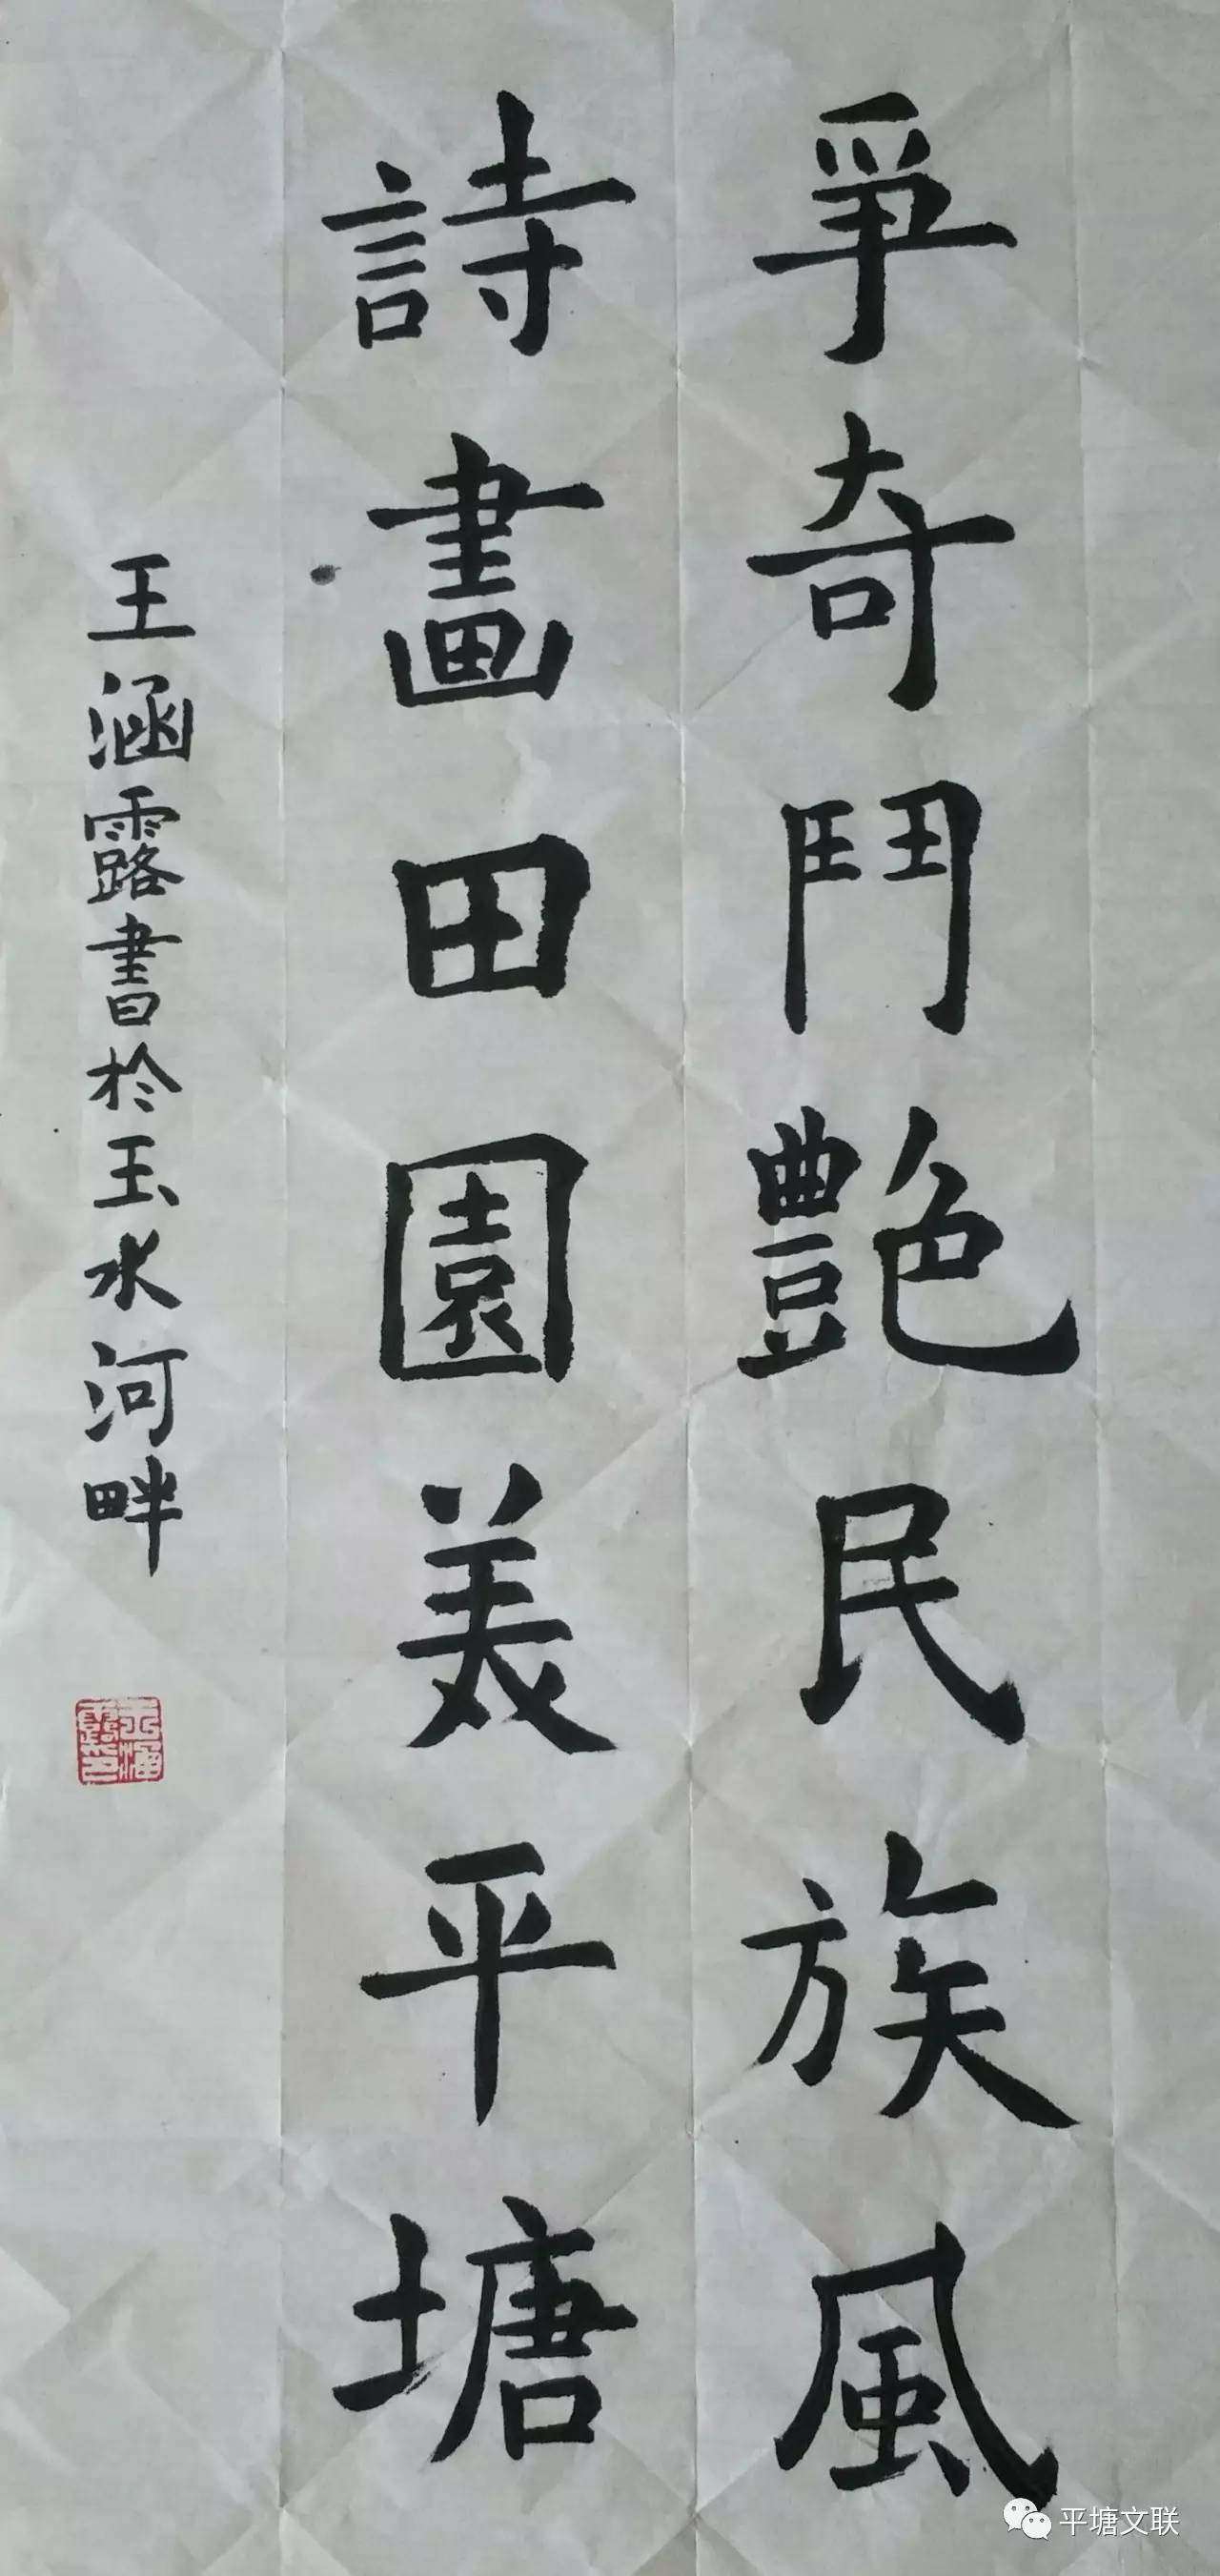 爭奇鬥艷民族風
詩畫田園美平塘
王涵露書於玉水河畔
王涵露印
平塘文联